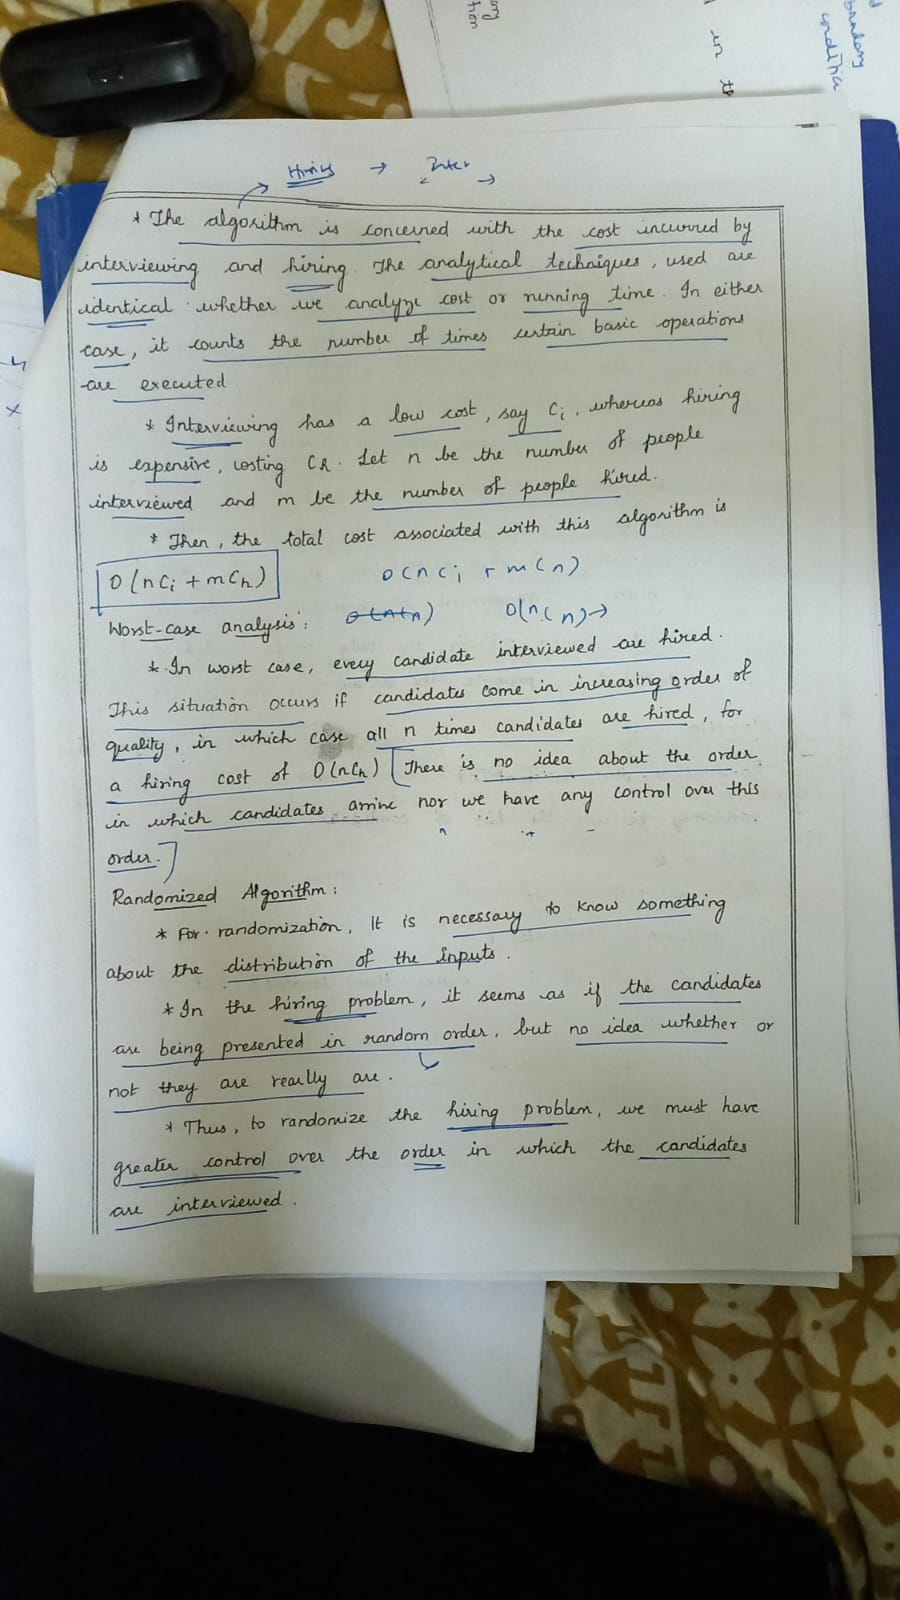 ory
tion
in th
boundary
conditia
Hiring → Inter →
* The algorithm is concerned with the cost incurred by
interviewing and hiring. The analytical techniques, used are
identical whether we analyze cost or running time. In either
case, it counts the number of times certain basic operations
are executed
* Interviewing has a low cost, say Ci, whereas hiring
is expensive, costing Ch. Let n be the number of people
interviewed and m be the number of people hired.
* Then, the total cost associated with this algorithm is
O(nCi + mCh) O(nCi + mCh)
Worst-case analysis: O(nCh) →
* In worst case, every candidate interviewed are hired.
This situation occurs if candidates come in increasing order of
quality, in which case all n times candidates are hired, for
a hiring cost of O(nCh) [There is no idea about the order
in which candidates arrive nor we have any control over this
order.]
Randomized Algorithm:
* For randomization, It is necessary to know something
about the distribution of the inputs.
* In the hiring problem, it seems as if the candidates
are being presented in random order, but no idea whether or
not they are really are.
* Thus, to randomize the hiring problem, we must have
greater control over the order in which the candidates
are interviewed.